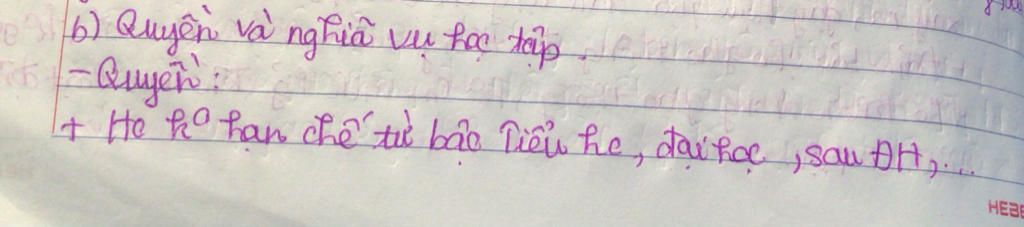 b) Quyền và nghĩa vụ học tập.
- Quyền:
+ Hc ko hạn chế từ bậc Tiểu hc, đại học, sau ĐH,...
HEBE